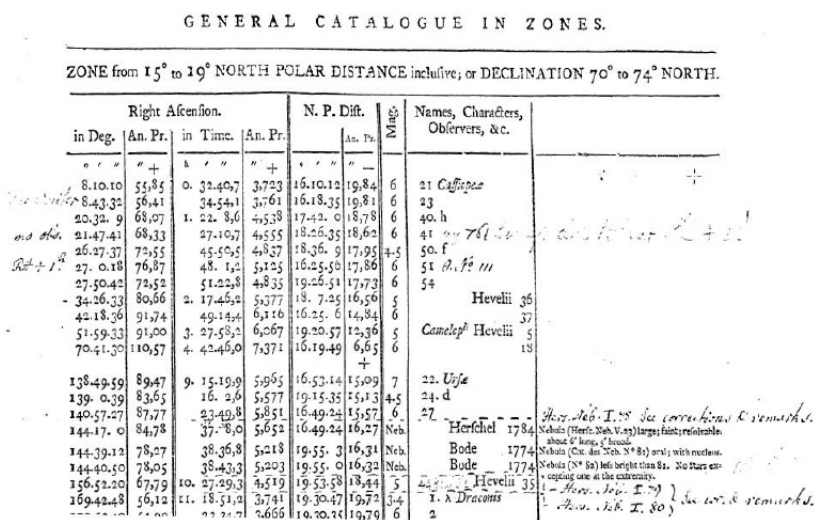 GENERAL CATALOGUE IN ZONES.
ZONE from 15° to 19° NORTH POLAR DISTANCE inclusive; or DECLINATION 70° to 74° NORTH.
Right Ascension. N. P. Dist. Mag. Names, Characters,
in Deg. An. Pr. in Time. An. Pr. An. Pr. Observers, &c.
° ′ ″ ″ + h ′ ″ ″ + ° ′ ″ ″ —
8.10.10 55,85 0. 32.40,7 3,723 16.10.12 19,84 6 21 Cassiopeæ
8.43.32 56,41 34.54,1 3,761 16.18.35 19,81 6 23
20.32. 9 68,07 1. 22. 8,6 4,538 17.42. 0 18,78 6 40. h
no obs. 21.47.41 68,33 27.10,7 4,555 18.26.35 18,62 6 41
26.27.37 72,55 45.50,5 4,837 18.36. 9 17,95 4.5 50. f
27. 0.18 76,87 48. 1,2 5,125 16.25.56 17,86 6 51
27.50.42 72,52 51.22,8 4,835 19.26.51 17,73 6 54
34.26.33 80,66 2. 17.46,2 5,377 18. 7.25 16,56 5 Hevelii 36
42.18.36 91,74 49.14,4 6,116 16.25. 6 14,84 6 37
51.59.33 91,00 3. 27.58,2 6,067 19.20.57 12,36 5 Camelop. Hevelii 5
70.41.30 110,57 4. 42.46,0 7,371 16.19.49 6,65 6 18
+
138.49.59 89,47 9. 15.19,9 5,965 16.53.14 15,09 7 22. Ursæ
139. 0.39 83,65 16. 2,6 5,577 19.15.35 15,13 4.5 24. d
140.57.27 87,77 23.49,8 5,851 16.49.24 15,57 6 27 Hers. Neb. I. 78 See corrections & remarks.
144.17. 0 84,78 37. 8,0 5,652 16.49.24 16,27 Neb. Herschel 1784 Nebula (Hersc. Neb. V. 23) large; faint; resolvable.
about 6' long, 5' broad.
144.39.12 78,27 38.36,8 5,218 19.55. 3 16,31 Neb. Bode 1774 Nebula (Cat. des Neb. N° 81) oval; with nucleus.
144.40.50 78,05 38.43,3 5,203 19.55. 0 16,32 Neb. Bode 1774 Nebula (N° 82) less bright than 81. No Stars ex-
cepting one at the extremity.
156.52.20 67,79 10. 27.29,3 4,519 19.53.58 18,44 5 Hevelii 35 Hers. Neb. I. 79
169.42.48 56,12 11. 18.51,2 3,741 19.30.47 19,72 3.4 1. λ Draconis Hers. Neb. I. 80 } See cor. & remarks.
3,666 19.30.35 19,79 6 2